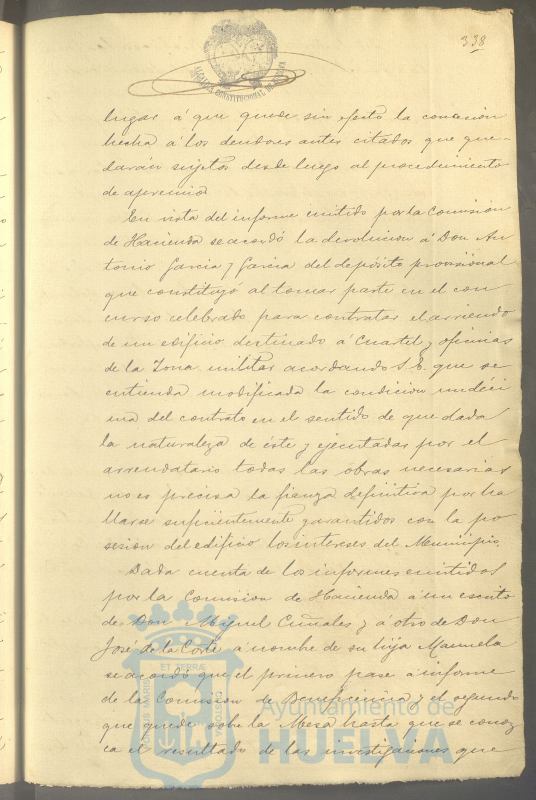 338
ALCALDIA CONSTITUCIONAL DE HUELVA
lugar á que quede sin efecto la concesion
hecha á los deudores antes citados que que-
darán sujetos desde luego al procedimiento
de apremio
En vista del informe emitido por la Comision
de Hacienda se acordó la devolucion á Don An
tonio Garcia y Garcia del depósito provisional
que constituyó al tomar parte en el con
curso celebrado para contratar el arriendo
de un edificio destinado á Cuartel y oficinas
de la Zona militar acordando S.E. que se
entienda modificada la condicion undéci
ma del contrato en el sentido de que dada
la naturaleza de éste y ejecutadas por el
arrendatario todas las obras necesarias
no es precisa la fianza definitiva por ha
llarse suficientemente garantidos con la po
sesion del edificio los intereses del Municipio.
Dada cuenta de los informes emitidos
por la Comision de Hacienda á un escrito
de Don Miguel y a otro de Don
José de la Corte a nombre de su hija Manuela
se acordó que el primero pase a informe
de la Comision de Beneficencia y el segundo
que quede sobre la Mesa hasta que se conoz
ca el resultado de las investigaciones que
Ayuntamiento de
HUELVA
PORTUS MARIS
ET TERRÆ
CUSTODIA